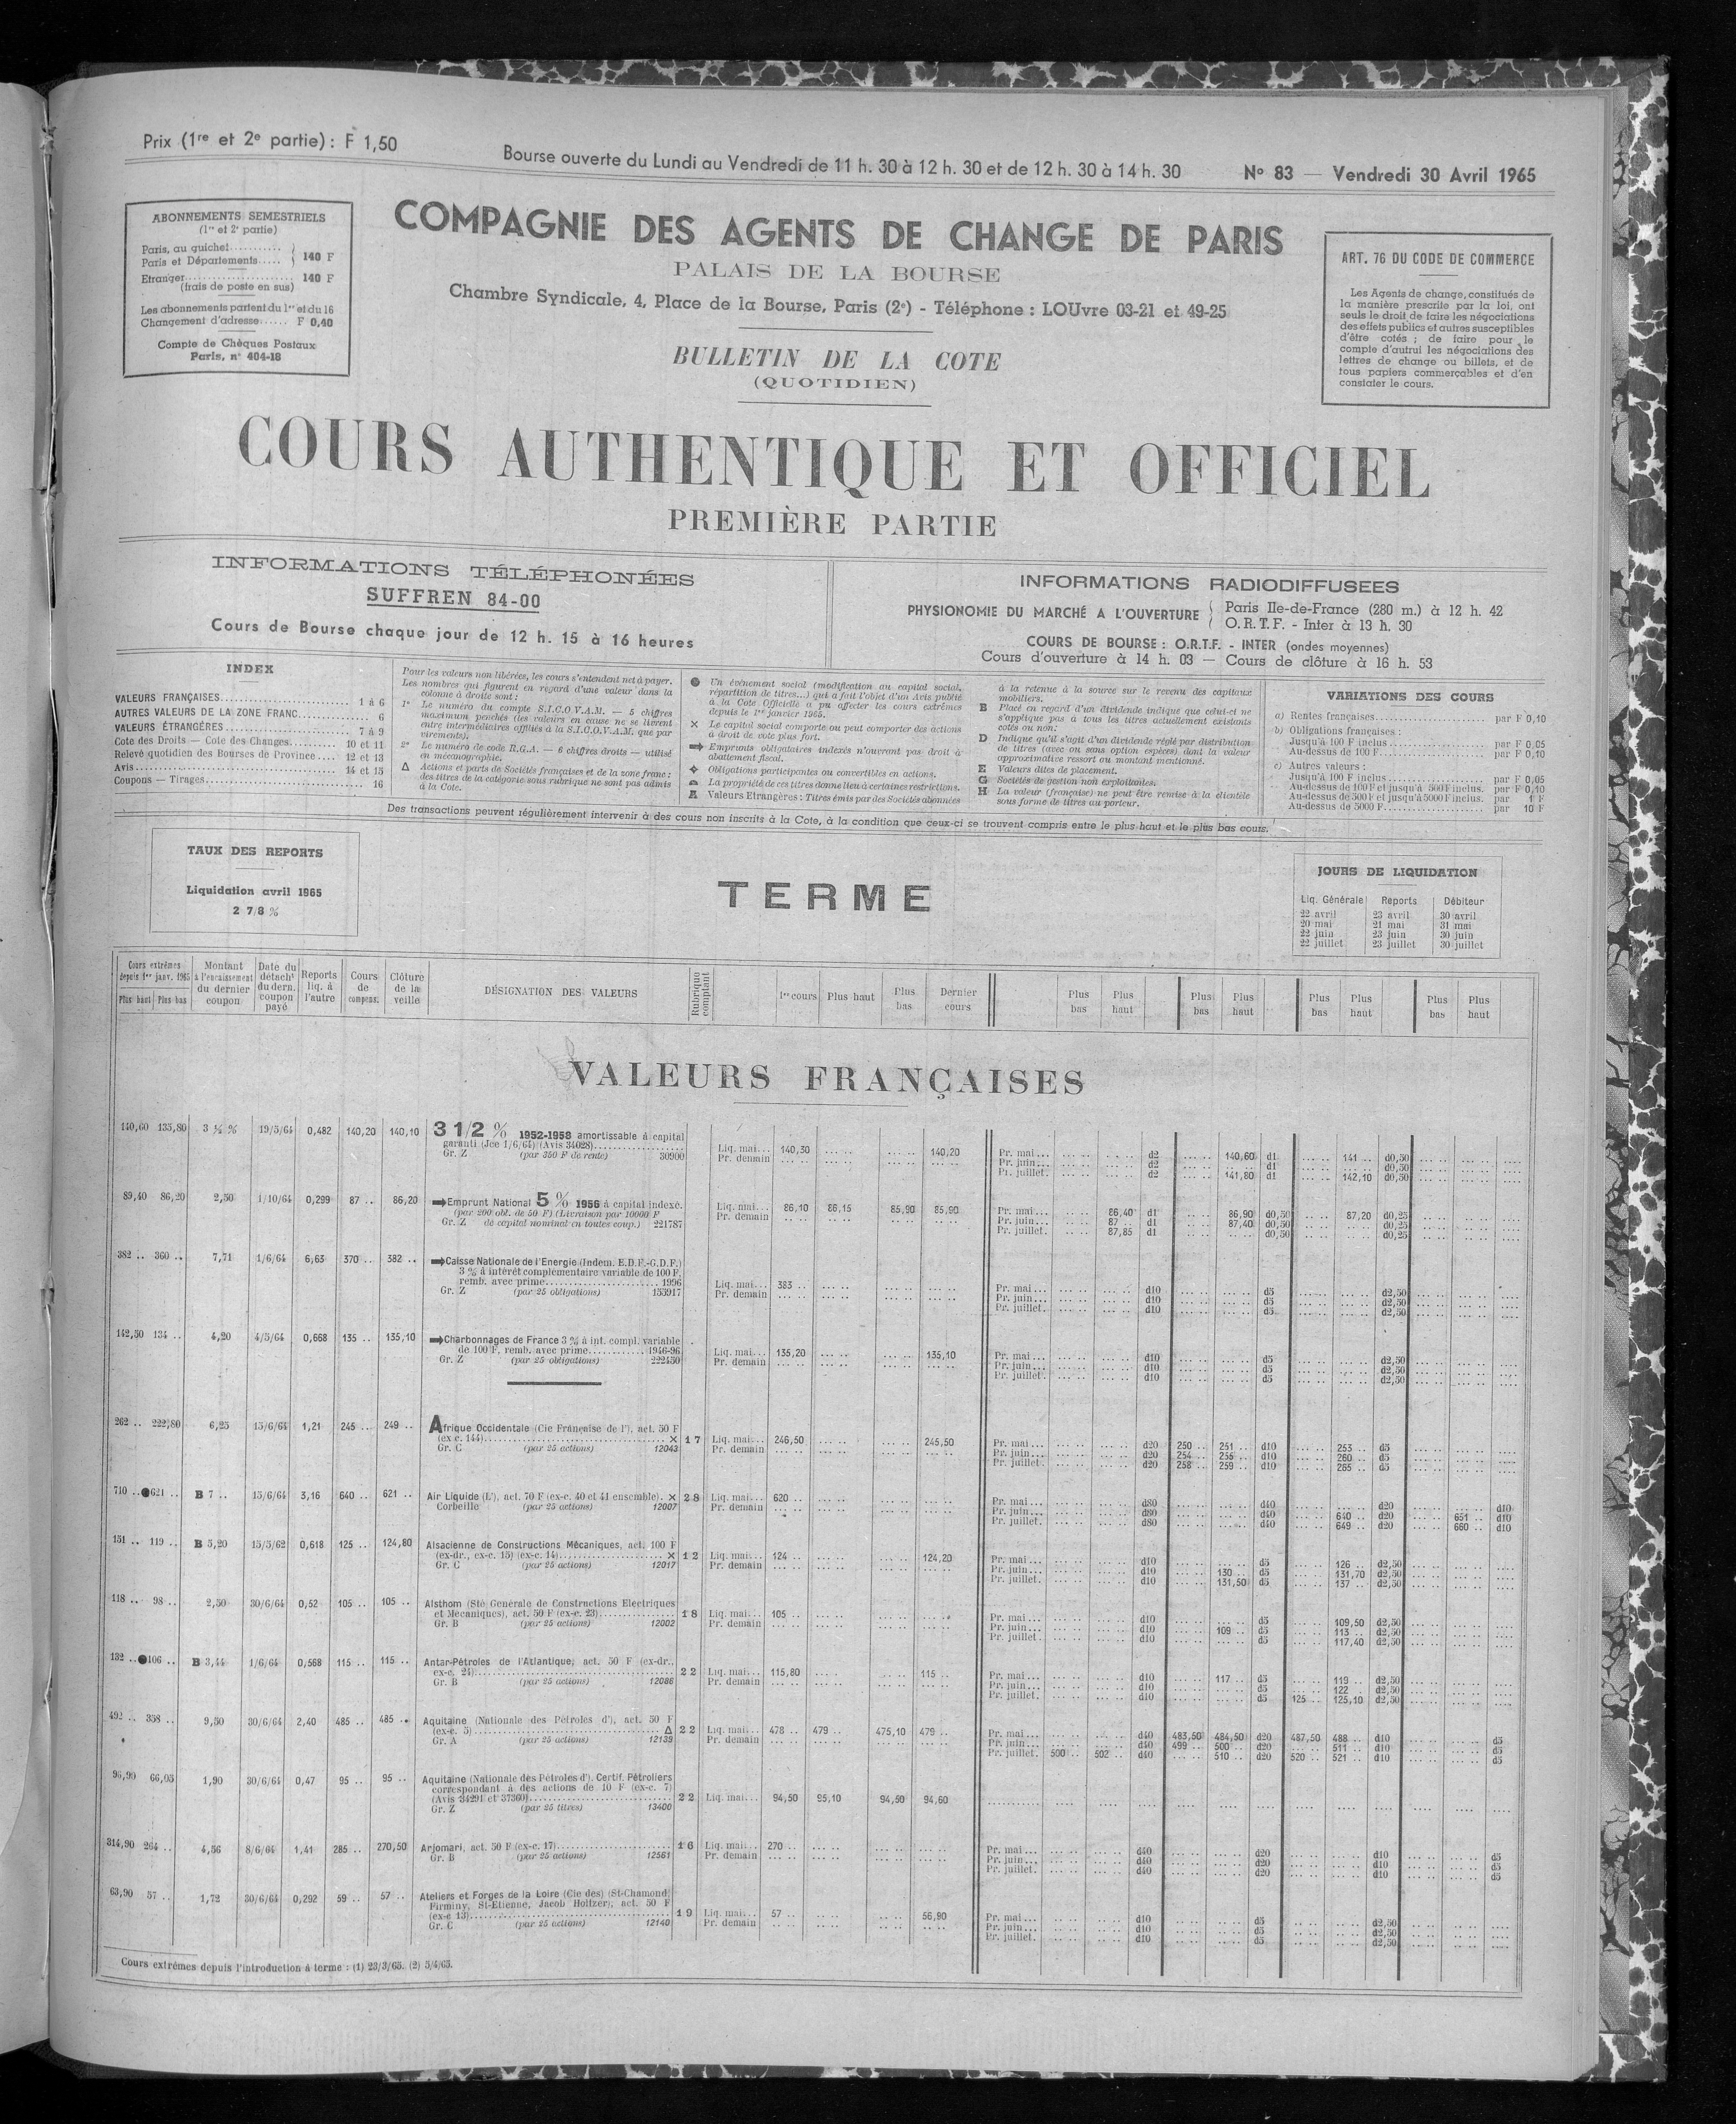 Prix (1re et 2e partie) : F 1,50
Bourse ouverte du Lundi au Vendredi de 11 h. 30 à 12 h. 30 et de 12 h. 30 à 14 h. 30
No 83 — Vendredi 30 Avril 1965
ABONNEMENTS SEMESTRIELS
(1re et 2e partie)
Paris, au guichet..........
Paris et Départements..... } 140 F
Etranger..................... 140 F
(frais de poste en sus)
Les abonnements partent du 1er et du 16
Changement d'adresse...... F 0,40
Compte de Chèques Postaux
Paris, n° 404-18
COMPAGNIE DES AGENTS DE CHANGE DE PARIS
PALAIS DE LA BOURSE
Chambre Syndicale, 4, Place de la Bourse, Paris (2e) - Téléphone : LOUvre 03-21 et 49-25
BULLETIN DE LA COTE
(QUOTIDIEN)
ART. 76 DU CODE DE COMMERCE
Les Agents de change, constitués de
la manière prescrite par la loi, ont
seuls le droit de faire les négociations
des effets publics et autres susceptibles
d'être cotés ; de faire pour le
compte d'autrui les négociations des
lettres de change ou billets, et de
tous papiers commerçables et d'en
constater le cours.
COURS AUTHENTIQUE ET OFFICIEL
PREMIÈRE PARTIE
INFORMATIONS TÉLÉPHONÉES
SUFFREN 84-00
Cours de Bourse chaque jour de 12 h. 15 à 16 heures
INFORMATIONS RADIODIFFUSEES
PHYSIONOMIE DU MARCHÉ A L'OUVERTURE { Paris Ile-de-France (280 m.) à 12 h. 42
O.R.T.F. - Inter à 13 h. 30
COURS DE BOURSE : O.R.T.F. - INTER (ondes moyennes)
Cours d'ouverture à 14 h. 03 — Cours de clôture à 16 h. 53
INDEX
VALEURS FRANÇAISES.................. 1 à 6
AUTRES VALEURS DE LA ZONE FRANC............ 6
VALEURS ÉTRANGÈRES.................. 7 à 9
Cote des Droits — Cote des Changes.......... 10 et 11
Relevé quotidien des Bourses de Province.... 12 et 13
Avis.................. 14 et 15
Coupons — Tirages.................. 16
Pour les valeurs non libérées, les cours s'entendent net à payer.
Les nombres qui figurent en regard d'une valeur dans la
colonne à droite sont :
1° Le numéro du compte S.I.C.O.V.A.M. — 5 chiffres
maximum penchés (les valeurs en cause ne se livrent
entre intermédiaires affiliés à la S.I.C.O.V.A.M. que par
virements).
2° Le numéro de code R.G.A. — 6 chiffres droits — utilisé
en mécanographie.
Δ Actions et parts de Sociétés françaises et de la zone franc :
des titres de la catégorie sous rubrique ne sont pas admis
à la Cote.
● Un événement social (modification au capital social,
répartition de titres...) qui a fait l'objet d'un Avis publié
à la Cote Officielle a pu affecter les cours extrêmes
depuis le 1er janvier 1965.
× Le capital social comporte ou peut comporter des actions
à droit de vote plus fort.
➡ Emprunts obligataires indexés n'ouvrant pas droit à
abattement fiscal.
Obligations participantes ou convertibles en actions.
La propriété de ces titres donne lieu à certaines restrictions.
A Valeurs Etrangères : Titres émis par des Sociétés abonnées
à la retenue à la source sur le revenu des capitaux
mobiliers.
B Placé en regard d'un dividende indique que celui-ci ne
s'applique pas à tous les titres actuellement existants
cotés ou non.
D Indique qu'il s'agit d'un dividende réglé par distribution
de titres (avec ou sans option espèces) dont la valeur
approximative ressort au montant mentionné.
E Valeurs dites de placement.
G Sociétés de gestion non exploitantes.
H La valeur (française) ne peut être remise à la clientèle
sous forme de titres au porteur.
VARIATIONS DES COURS
a) Rentes françaises.................. par F 0,10
b) Obligations françaises :
Jusqu'à 100 F inclus.................. par F 0,05
Au-dessus de 100 F.................. par F 0,10
c) Autres valeurs :
Jusqu'à 100 F inclus.................. par F 0,05
Au-dessus de 100 F et jusqu'à 500 F inclus. par F 0,10
Au-dessus de 500 F et jusqu'à 5000 F inclus. par 1 F
Au-dessus de 5000 F.................. par 10 F
Des transactions peuvent régulièrement intervenir à des cours non inscrits à la Cote, à la condition que ceux-ci se trouvent compris entre le plus haut et le plus bas cours.
TAUX DES REPORTS
Liquidation avril 1965
2 7/8 %
TERME
JOURS DE LIQUIDATION
Liq. Générale Reports Débiteur
22 avril 23 avril 30 avril
20 mai 21 mai 31 mai
22 juin 23 juin 30 juin
22 juillet 23 juillet 30 juillet
Cours extrêmes depuis 1er janv. 1965 Plus haut Plus bas
Montant à l'encaissement du dernier coupon
Date du détacht du dern. coupon payé
Reports liq. à l'autre
Cours de compens.
Clôture de la veille
DÉSIGNATION DES VALEURS
Rubrique comptant
1er cours Plus haut Plus bas Dernier cours
Plus bas Plus haut Plus bas Plus haut Plus bas Plus haut Plus bas Plus haut
VALEURS FRANÇAISES
140,60 135,80 3 ½ % 19/5/64 0,482 140,20 140,10 3 1/2 % 1952-1958 amortissable à capital
garanti (Jce 1/6/64) (Avis 34028)..........
Gr. Z (par 350 F de rente) 30900
Liq. mai... 140,30 140,20
Pr. demain
Pr. mai... d2 140,60 d1 141 .. d0,50
Pr. juin... d2 d1 d0,50
Pr. juillet. d2 141,80 d1 142,10 d0,50
89,40 86,20 2,50 1/10/64 0,299 87 .. 86,20 ➡Emprunt National 5 % 1956 à capital indexé.
(par 200 obl. de 50 F) (Livraison par 10000 F
Gr. Z de capital nominal en toutes coup.) 221787
Liq. mai... 86,10 86,15 85,90 85,90
Pr. demain
Pr. mai... 86,40 d1 86,90 d0,50 87,20 d0,25
Pr. juin... 87 .. d1 87,40 d0,50 d0,25
Pr. juillet. 87,85 d1 d0,50 d0,25
382 .. 360 .. 7,71 1/6/64 6,63 370 .. 382 .. ➡Caisse Nationale de l'Energie (Indem. E.D.F.-G.D.F.)
3 % à intérêt complémentaire variable de 100 F,
remb. avec prime.................. 1996
Gr. Z (par 25 obligations) 153917
Liq. mai... 383 ..
Pr. demain
Pr. mai... d10 d5 d2,50
Pr. juin... d10 d5 d2,50
Pr. juillet. d10 d5 d2,50
142,50 134 .. 4,20 4/5/64 0,668 135 .. 135,10 ➡Charbonnages de France 3 % à int. compl. variable
de 100 F, remb. avec prime............ 1946-96
Gr. Z (par 25 obligations) 222450
Liq. mai... 135,20 135,10
Pr. demain
Pr. mai... d10 d5 d2,50
Pr. juin... d10 d5 d2,50
Pr. juillet. d10 d5 d2,50
262 .. 222,80 6,25 15/6/64 1,21 245 .. 249 .. Afrique Occidentale (Cie Française de l'), act. 50 F
(ex-c. 144).................. × 17
Gr. C (par 25 actions) 12043
Liq. mai... 246,50 245,50
Pr. demain
Pr. mai... d20 250 .. 251 .. d10 253 .. d5
Pr. juin... d20 254 .. 255 .. d10 260 .. d5
Pr. juillet. d20 258 .. 259 .. d10 265 .. d5
710 .. ●621 .. B 7 .. 15/6/64 3,16 640 .. 621 .. Air Liquide (L'), act. 70 F (ex-c. 40 et 41 ensemble). × 28
Corbeille (par 25 actions) 12007
Liq. mai... 620 ..
Pr. demain
Pr. mai... d80 d40 d20 d10
Pr. juin... d80 d40 640 .. d20 651 .. d10
Pr. juillet. d80 d40 649 .. d20 660 .. d10
151 .. 119 .. B 5,20 15/5/62 0,618 125 .. 124,80 Alsacienne de Constructions Mécaniques, act. 100 F
(ex-dr., ex-c. 15) (ex-c. 14).................. × 12
Gr. C (par 25 actions) 12017
Liq. mai... 124 .. 124,20
Pr. demain
Pr. mai... d10 d5 126 .. d2,50
Pr. juin... d10 130 .. d5 131,70 d2,50
Pr. juillet. d10 131,50 d5 137 .. d2,50
118 .. 98 .. 2,50 30/6/64 0,52 105 .. 105 .. Alsthom (Sté Générale de Constructions Electriques
et Mécaniques), act. 50 F (ex-c. 23).......... 18
Gr. B (par 25 actions) 12002
Liq. mai... 105 ..
Pr. demain
Pr. mai... d10 d5 109,50 d2,50
Pr. juin... d10 109 .. d5 113 .. d2,50
Pr. juillet. d10 d5 117,40 d2,50
132 .. ●106 .. B 3,44 1/6/64 0,568 115 .. 115 .. Antar-Pétroles de l'Atlantique, act. 50 F (ex-dr.,
ex-c. 24).................. 22
Gr. B (par 25 actions) 12086
Liq. mai... 115,80 115 ..
Pr. demain
Pr. mai... d10 117 .. d5 119 .. d2,50
Pr. juin... d10 d5 122 .. d2,50
Pr. juillet. d10 d5 125 .. 125,10 d2,50
492 .. 358 .. 9,50 30/6/64 2,40 485 .. 485 .. Aquitaine (Nationale des Pétroles d'), act. 50 F
(ex-c. 5).................. Δ 22
Gr. A (par 25 actions) 12133
Liq. mai... 478 .. 479 .. 475,10 479 ..
Pr. demain
Pr. mai... d40 483,50 484,50 d20 487,50 488 .. d10 d5
Pr. juin... d40 499 .. 500 .. d20 511 .. d10 d5
Pr. juillet. 500 .. 502 .. d40 510 .. d20 520 .. 521 .. d10 d5
96,90 66,05 1,90 30/6/64 0,47 95 .. 95 .. Aquitaine (Nationale des Pétroles d'). Certif. Pétroliers
correspondant à des actions de 10 F (ex-c. 7)
(Avis 34291 et 37360).................. 22
Gr. Z (par 25 titres) 13400
Liq. mai... 94,50 95,10 94,50 94,60
314,90 264 .. 4,56 8/6/64 1,41 285 .. 270,50 Arjomari, act. 50 F (ex-c. 17).................. 16
Gr. B (par 25 actions) 12561
Liq. mai... 270 ..
Pr. demain
Pr. mai... d40 d20 d10 d5
Pr. juin... d40 d20 d10 d5
Pr. juillet. d40 d20 d10 d5
63,90 57 .. 1,72 30/6/64 0,292 59 .. 57 .. Ateliers et Forges de la Loire (Cie des) (St-Chamond,
Firminy, St-Etienne, Jacob Holtzer), act. 50 F
(ex-c 13).................. 19
Gr. C (par 25 actions) 12140
Liq. mai... 57 .. 56,90
Pr. demain
Pr. mai... d10 d5 d2,50
Pr. juin... d10 d5 d2,50
Pr. juillet. d10 d5 d2,50
Cours extrêmes depuis l'introduction à terme : (1) 23/3/65. (2) 5/4/65.